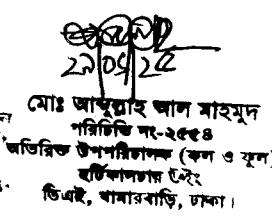 ২৯ ০৫ ২৫
মোঃ আব্দুল্লাহ আল মাহমুদ
পরিচিতি নং-২৫৫৪
অতিরিক্ত উপপরিচালক (ফল ও ফুল)
হর্টিকালচার উইং
ডিএই, খামারবাড়ি, ঢাকা।